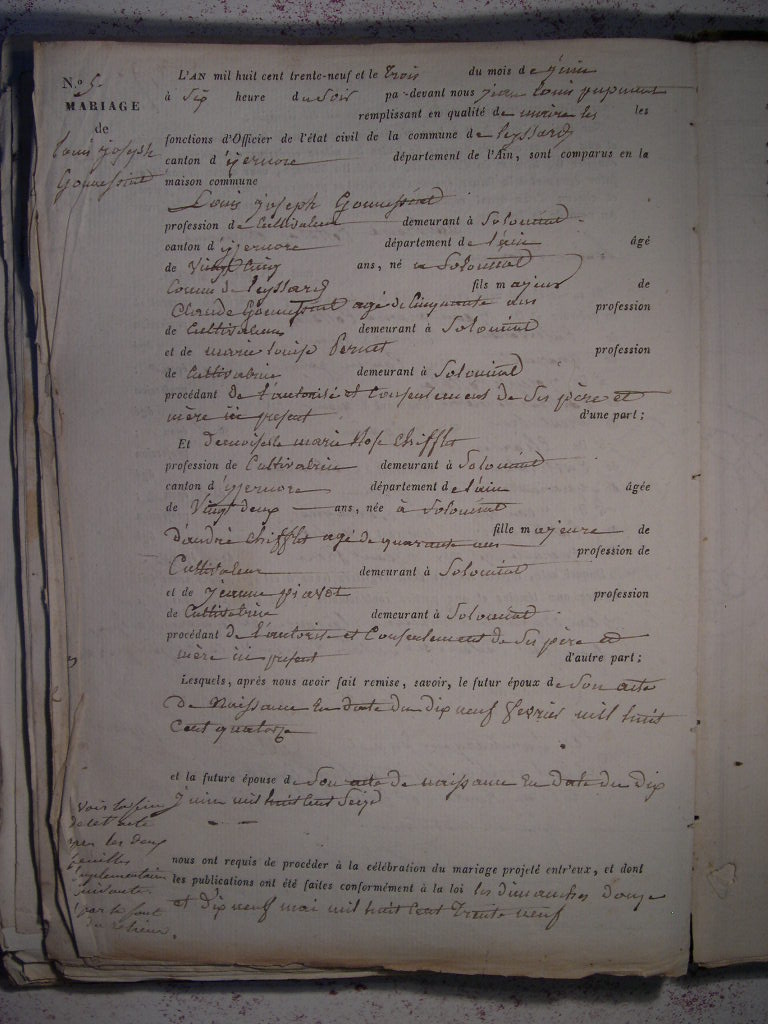 N.º 5.
MARIAGE
de
Louis joseph
Goumessint
L'AN mil huit cent trente-neuf et le Trois du mois de juin
à Six heure du Soir par-devant nous jean Louis
remplissant en qualité de maire les
fonctions d'Officier de l'état civil de la commune de leyssard
canton d'yzernore département de l'Ain, sont comparus en la
maison commune
Louis joseph
profession de Cultivateur demeurant à Solomiat
canton d'yzernore département de l'ain âgé
de Vingt Cinq ans, né a Solomiat
de leyssard fils majeur de
Claude agé de Cinquante ans profession
de Cultivateur demeurant à Solomiat
et de marie louise Pernet profession
de Cultivatrice demeurant à Solomiat
procédant de l'autorisé et Consentement de Ses père et
mère ici present d'une part ;
Et demoiselle marie Rose Chifflet
profession de Cultivatrice demeurant à Solomiat
canton d'yzernore département de l'ain âgée
de Vingt deux ans, née à Solomiat
fille majeure de
D'andré Chifflet agé de quarante ans profession de
Cultivateur demeurant à Solomiat
et de jeanne profession
de Cultivatrice demeurant à Solomiat
procédant de l'autorisé et Consentement de Ses père et
mère ici present d'autre part ;
Lesquels, après nous avoir fait remise, savoir, le futur époux de Son acte
de Naissance En date du dix neuf fevrier mil huit
Cent quatorze
et la future épouse de Son acte de naissance En date du Dix
juin mil huit Cent Seize
nous ont requis de procéder à la célébration du mariage projeté entr'eux, et dont
les publications ont été faites conformément à la loi les dimanches douze
et Dix neuf mai mil huit Cent Trente neuf
Voir la fin
de cet acte
les deux
feuilles